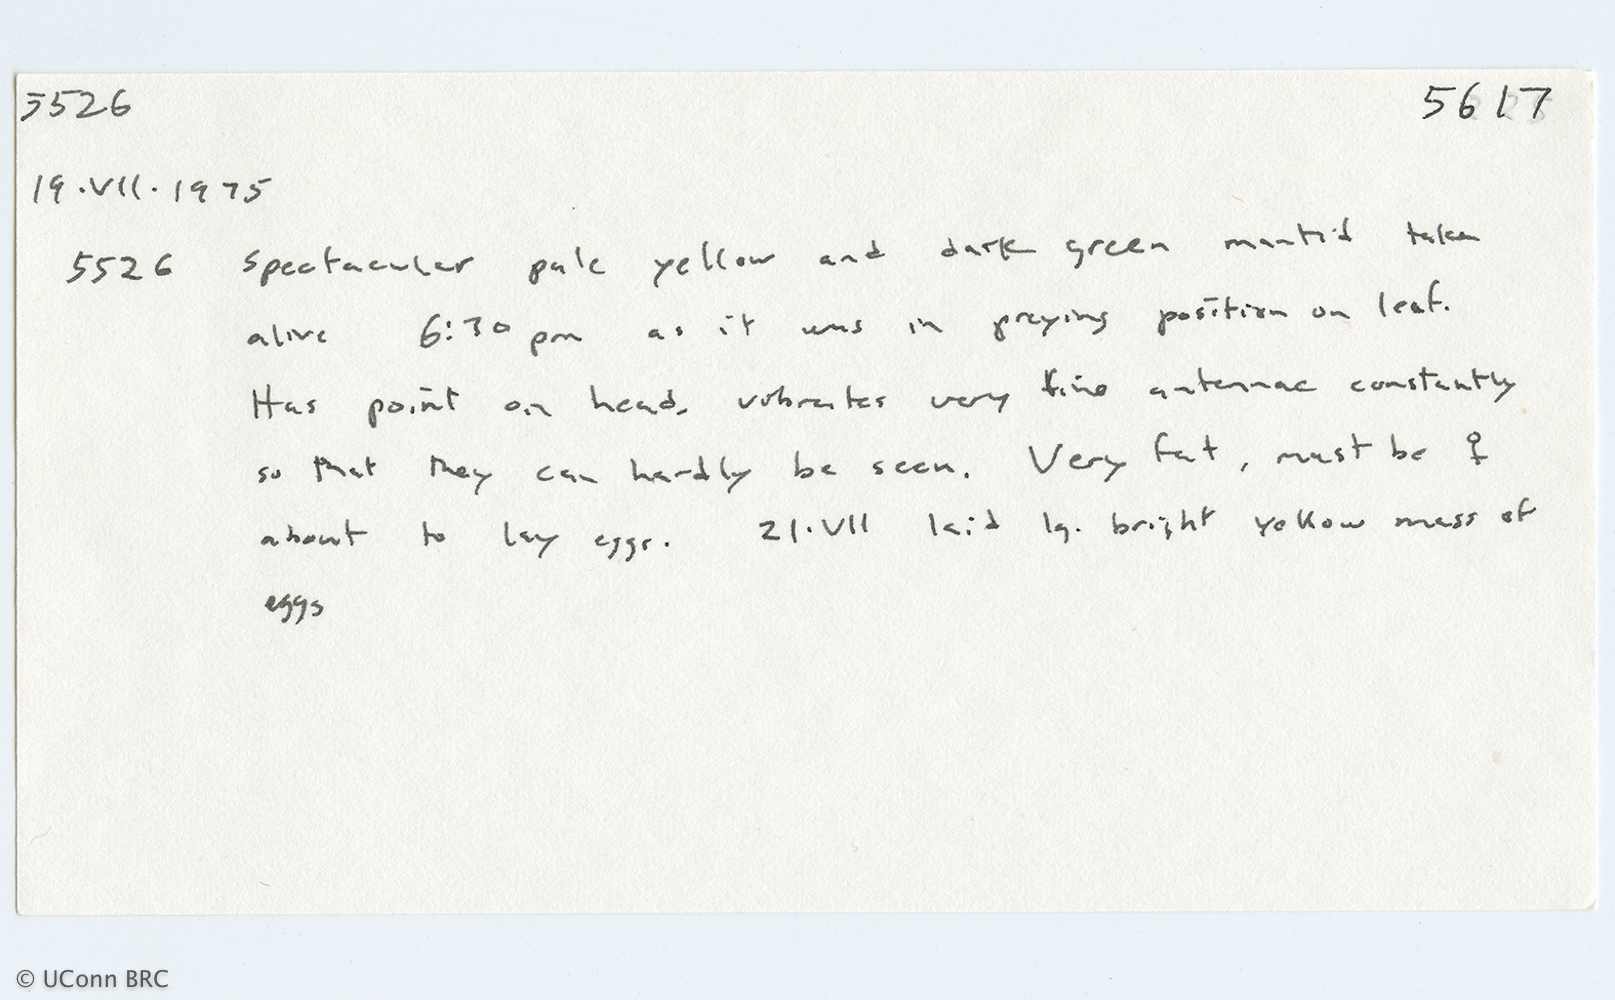 5526 5617
19.VII.1975
5526 Spectacular pale yellow and dark green mantid taken
alive 6:30 pm as it was in preying position on leaf.
Has point on head, vibrates very fine antennae constantly
so that they can hardly be seen. Very fat, must be ♀
about to lay eggs. 21.VII laid lg. bright yellow mass of
eggs
© UConn BRC